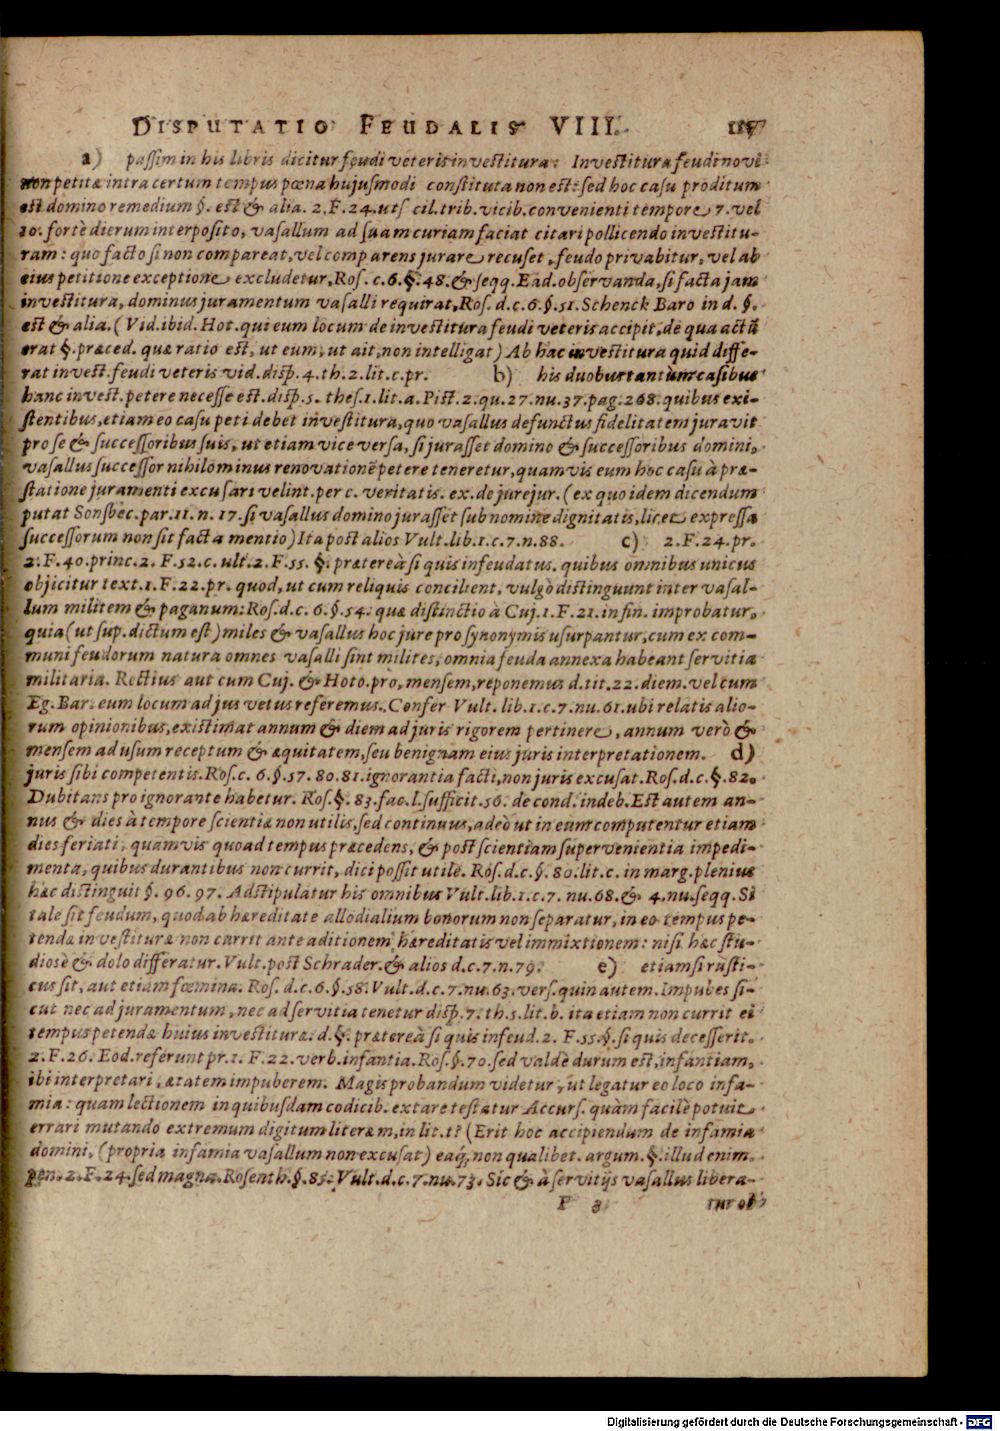 DISPUTATIO FEUDALIS VIII. 117
a) passim in his libris dicitur feudi veteris investitura: Investitura feudi novi
non petitæ intra certum tempus pœna hujusmodi constituta non est: sed hoc casu proditum
est domino remedium §. est & alia. 2. F. 24. ut scil. trib. vicib. convenienti tempore 7. vel
10. fortè dierum interposito, vasallum ad suam curiam faciat citari pollicendo investitu-
ram: quo facto si non compareat, vel comparens jurare recuset, feudo privabitur, vel ab
eius petitione exceptione excludetur, Ros. c. 6. §. 48. & seqq. Ead. observanda, si facta jam
investitura, dominus juramentum vasalli requirat, Ros. d. c. 6. §. 51. Schenck Baro in d. §.
est & alia. (Vid. ibid. Hot. qui eum locum de investitura feudi veteris accipit, de qua actū
erat §. præced. quæ ratio est, ut eum, ut ait, non intelligat) Ab hac investitura quid diffe-
rat invest. feudi veteris vid. disp. 4. th. 2. lit. c. pr. b) his duobus tantùm casibus
hanc invest. petere necesse est. disp. 5. thes. 1. lit. a. Pist. 2. qu. 27. nu. 37. pag. 268. quibus exi-
stentibus, etiam eo casu peti debet investitura, quo vasallus defunctus fidelitatem juravit
pro se & successoribus suis, ut etiam vice versa, si jurasset domino & successoribus domini,
vasallus successor nihilominus renovationē petere teneretur, quamvis eum hoc casu à præ-
statione juramenti excusari velint. per c. veritatis. ex. de jurejur. (ex quo idem dicendum
putat Sonsbec. par. 11. n. 17. si vasallus domino jurasset sub nomine dignitatis, licet expressa
successorum non sit facta mentio) Ita post alios Vult. lib. 1. c. 7. n. 88. c) 2. F. 24. pr.
2. F. 40. princ. 2. F. 52. c. ult. 2. F. 55. §. prætereà si quis infeudatus. quibus omnibus unicus
objicitur text. 1. F. 22. pr. quod, ut cum reliquis concilient, vulgò distinguunt inter vasal-
lum militem & paganum: Ros. d. c. 6. §. 54. quæ distinctio à Cuj. 1. F. 21. in fin. improbatur,
quia (ut sup. dictum est) miles & vasallus hoc jure pro synonymis usurpantur, cum ex com-
muni feudorum natura omnes vasalli sint milites, omnia feuda annexa habeant servitia
militaria. Rectius aut cum Cuj. & Hoto. pro, mensem, reponemus d. tit. 22. diem. vel cum
Eg. Bar. eum locum ad jus vetus referemus. Confer Vult. lib. 1. c. 7. nu. 61. ubi relatis alio-
rum opinionibus, existimat annum & diem ad juris rigorem pertinere, annum verò &
mensem ad usum receptum & æquitatem, seu benignam eius juris interpretationem. d)
juris sibi competentis. Ros. c. 6. §. 57. 80. 81. ignorantia facti, non juris excusat. Ros. d. c. §. 82.
Dubitans pro ignorante habetur. Ros. §. 83. fac. l. sufficit. 56. de cond. indeb. Est autem an-
nus & dies à tempore scientiæ non utilis, sed continuus, adeò ut in eum computentur etiam
dies feriati, quamvis quoad tempus præcedens, & post scientiam supervenientia impedi-
menta, quibus durantibus non currit, dici possit utile. Ros. d. c. §. 80. lit. c. in marg. plenius
hæc distinguit §. 96. 97. Adstipulatur his omnibus Vult. lib. 1. c. 7. nu. 68. & 4. nu. seqq. Si
tale sit feudum, quod ab hæreditate allodialium bonorum non separatur, in eo tempus pe-
tendæ investituræ non currit ante aditionem hæreditatis vel immixtionem: nisi hæc stu-
diosè & dolo differatur. Vult. post Schrader. & alios d. c. 7. n. 79. e) etiamsi rusti-
cus sit, aut etiam fœmina. Ros. d. c. 6. §. 58. Vult. d. c. 7. nu. 63. vers. quin autem. Impubes si-
cut nec ad juramentum, nec ad servitia tenetur disp. 7. th. 5. lit. b. ita etiam non currit ei
tempus petendæ huius investituræ. d. §. prætereà si quis infeud. 2. F. 55. §. si quis decesserit.
2. F. 26. Eod. referunt pr. 1. F. 22. verb. infantia. Ros. §. 70. sed valdè durum est, infantiam,
ibi interpretari, ætatem impuberem. Magis probandum videtur, ut legatur eo loco infa-
mia: quam lectionem in quibusdam codicib. extare testatur Accurs. quàm facilè potuit
errari mutando extremum digitum literæ m, in lit. t? (Erit hoc accipiendum de infamia
domini, (propria infamia vasallum non excusat) eaq́; non qualibet. argum. §. illud enim.
pen. 2. F. 24. sed magna. Rosenth. §. 85. Vult. d. c. 7. nu. 73. Sic & à servitijs vasallus libera-
P 3 tur ob
Digitalisierung gefördert durch die Deutsche Forschungsgemeinschaft - DFG